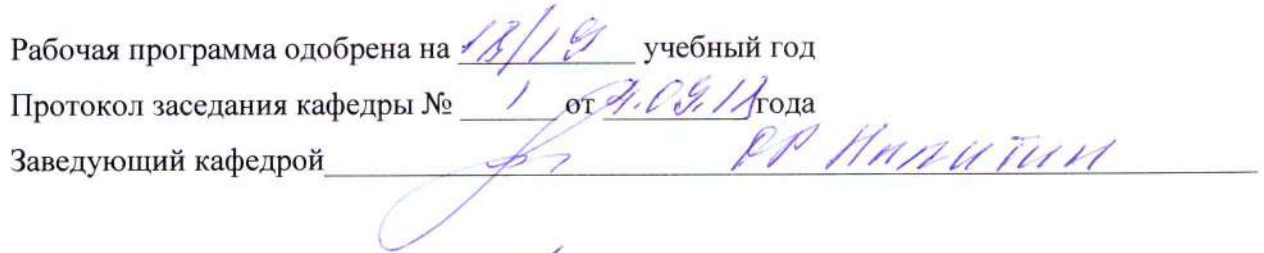 Рабочая программа одобрена на 18/19 учебный год
Протокол заседания кафедры № 1 от .09.18 года
Заведующий кафедрой Никитин